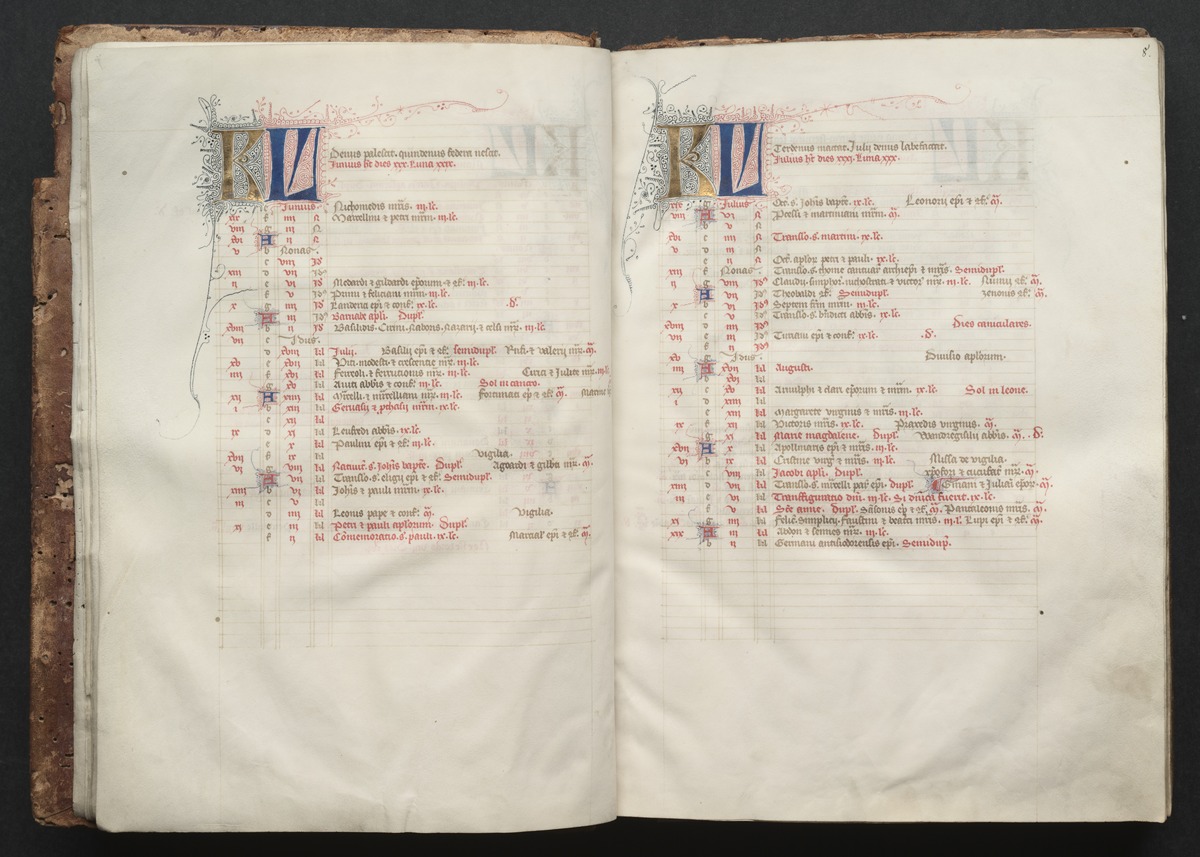 KL
Denus palescit. quindenus federa nescit.
Junius ht dies xxx. Luna xxix.
e Junius. Nichomedis mris. iij. lc.
xix f iiij N Marcellini & petri mrm. iij. lc.
viij g iij N
xvi A ij N
v b Nonas.
c viij Id
xiij d vij Id
ij e vi Id Medardi & gildardi eporum & 9f. iij. lc.
f v Id Primi & feliciani mrm. iij. lc.
x g iiij Id Landerici epi & conf. ix. lc. .d.
A iij Id Barnabe apli. Dupl.
xviij b ij Id Basilidis. Cirini. Naboris. Nazarij. & celsi mr. iij. lc.
vij c Idus.
d xviij kl Julij. Basilij epi & 9f. semidupl. Rufi. & valerij mr. m.
xv e xvij kl Viti. modesti. & crescentie mr. iij. lc.
iiij f xvi kl Ferreoli. & ferrucionis mr. iij. lc. Cirici & Julite mr. iij. lc
g xv kl Aviti abbis & conf. iij. lc. Sol in cancro.
xij A xiiij kl Marcelli. & marcelliani mr. iij. lc. Fortunati ep & 9f. m.
i b xiij kl Gervasij & prthasij mrm. ix. lc.
c xij kl
ix d xi kl Leufredi abbis. ix. lc.
e x kl Paulini epi & 9f. iij. lc.
xvij f ix kl Vigilia.
vi g viij kl Nativit. s. Johis bapte. Dupl. Agoardi & gilbti mr. m.
A vij kl Translo. s. eligij epi & 9f. Semidupl.
xiiij b vi kl Johis & pauli mrm. ix. lc.
iij c v kl
d iiij kl Leonis pape & conf. m. Vigilia.
xi e iij kl Petri & pauli aplorum. Dupl.
f ij kl Comemoratio. s. pauli. ix. lc. Marcial epi & 9f. m.
8.
KL
Terdenus mactat. Julij denus labefactat.
Julius ht dies xxxi. Luna xxx.
xix g Julius. Oct. s. Johis bapte. ix. lc. Leonorij epi & 9f. m.
viij A vi N Pcessi & martiniani mrm. m.
b v N
xvi c iiij N Translo. s. martini. ix. lc.
v d iij N
e ij N Oct. aplor petri & pauli. ix. lc.
xiij f Nonas. Translo. s. thome cantuar archiepi & mris. Semidupl.
ij g viij Id Claudij. simphor. nichostrati & victor mr. iij. lc.
A vij Id Theobaldi 9f. Semidupl. zenonis 9f. m.
x b vi Id Septem frm mrm. iij. lc.
c v Id Translo. s. bndicti abbis. ix. lc.
xviij d iiij Id Dies caniculares.
vij e iij Id Turiani epi & conf. ix. lc. .d.
f ij Id
xv g Idus. Divisio aplorum.
iiij A xvij kl Augusti.
b xvi kl
xij c xv kl Arnulphi & clari eporum & mrm. ix. lc. Sol in leone.
i d xiiij kl
e xiij kl Margarete virginis & mris. iij. lc.
ix f xij kl Victoris mris. ix. lc. Praxedis virginis. m.
g xi kl Marie magdalene. Dupl. Wandregisili abbis. m. .d.
xvij A x kl Apollinaris epi & mris. iij. lc.
vi b ix kl Cristine virg & mris. iij. lc. Missa de vigilia.
c viij kl Jacobi apli. Dupl. xpofori & cucufat mr. m.
xiiij d vij kl Translo. s. mrcelli par epi. dupl. Gmani & Juliani epor. m.
iij e vi kl Transfiguratio dni. iij. lc. Si dnica fuerit. ix. lc.
f v kl Sce anne. Dupl. Sasonis ep & 9f. m. Pantaleonis mris. m.
xi g iiij kl Felic. simplicij. faustini & beatri mris. iij. l. Lupi epi & 9f. m.
xix A iij kl Abdon & sennes mr. iij. lc.
b ij kl Germani antisiodorensis epi. Semidup.